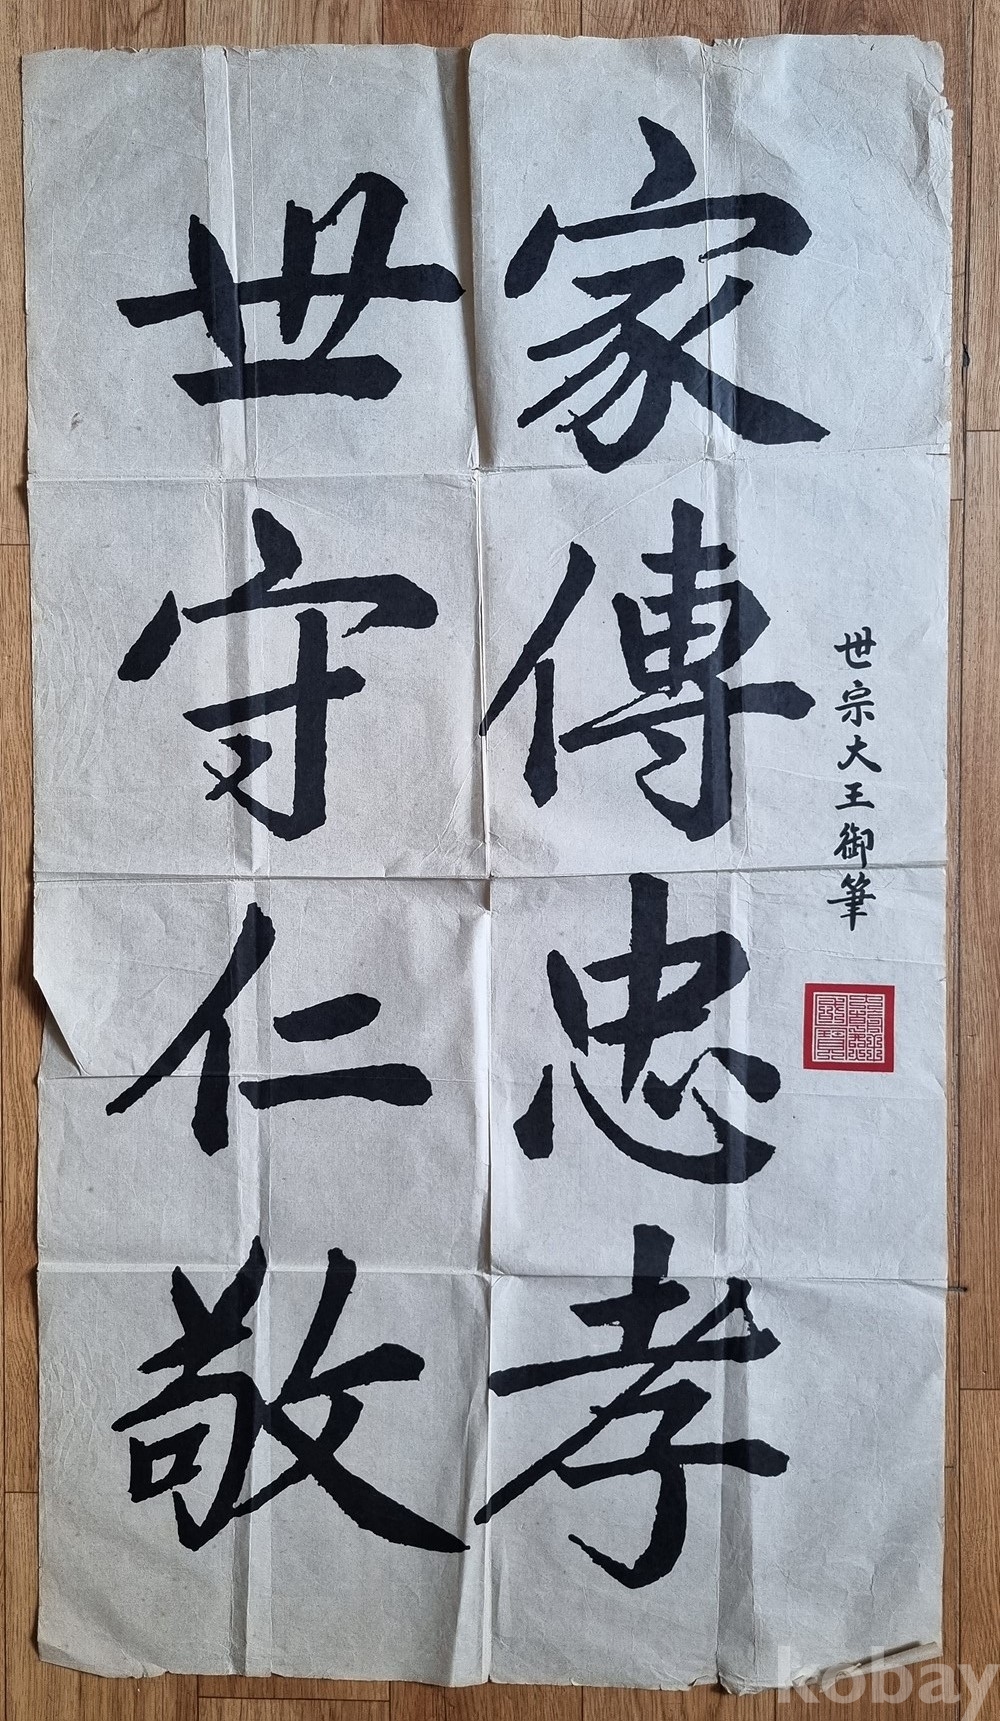 世宗大王御筆
家傳忠孝
世守仁敬
kobay